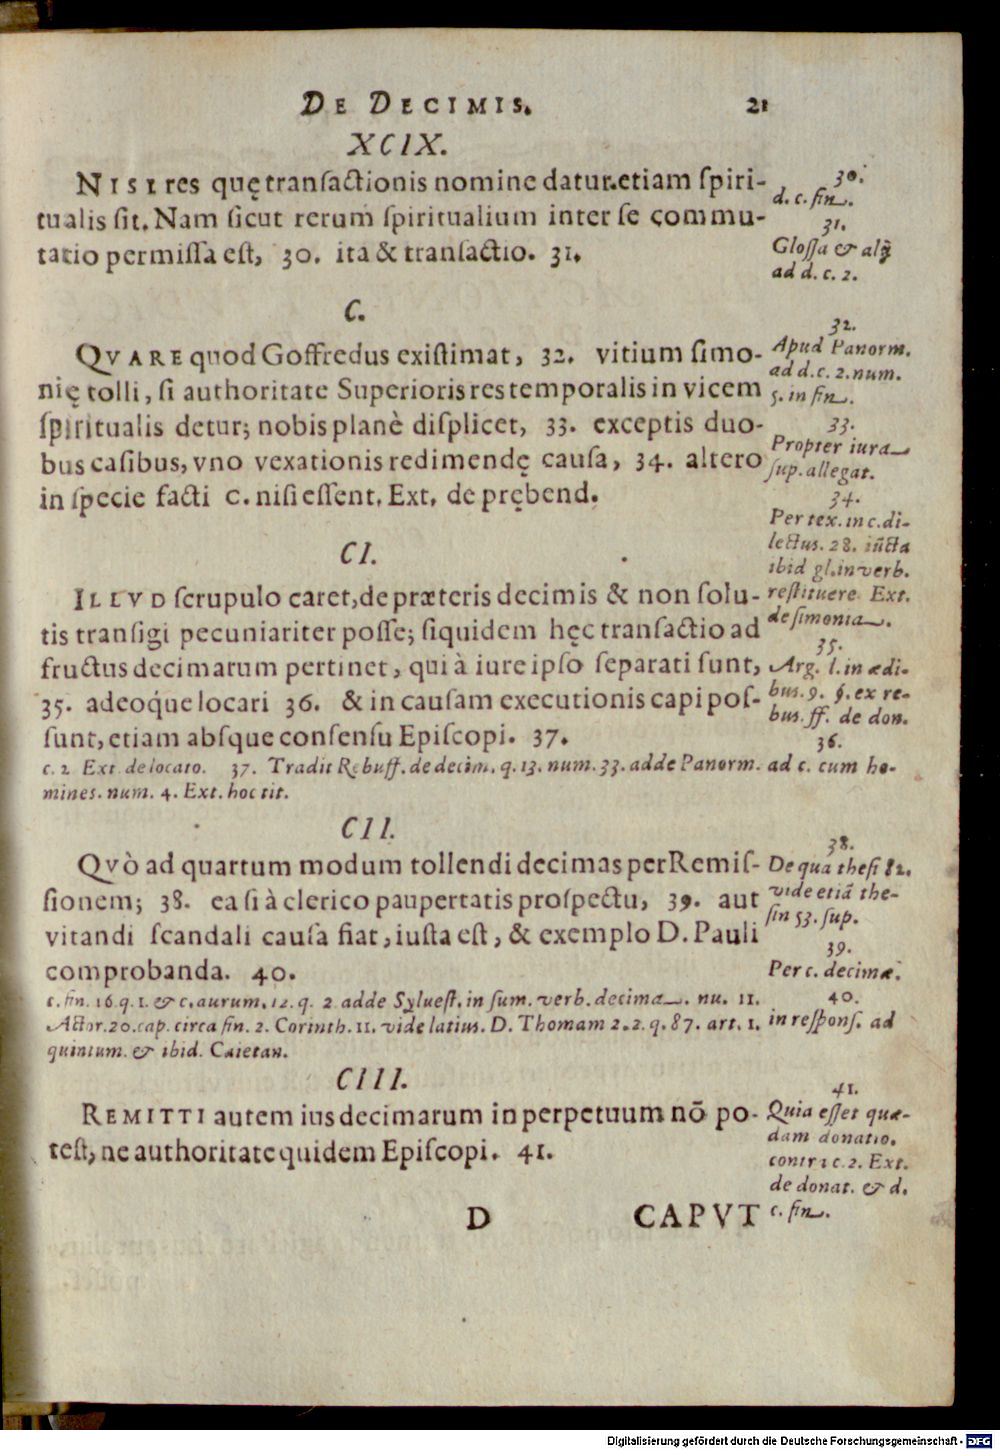 DE DECIMIS. 21
XCIX.
NISI res quę transactionis nomine datur. etiam spiri-
tualis sit. Nam sicut rerum spiritualium inter se commu-
tatio permissa est, 30. ita & transactio. 31.
30.
d. c. fin.
31.
Glossa & alij
ad d. c. 2.
C.
QVARE quod Goffredus existimat, 32. vitium simo-
nię tolli, si authoritate Superioris res temporalis in vicem
spiritualis detur; nobis planè displicet, 33. exceptis duo-
bus casibus, vno vexationis redimendę causa, 34. altero
in specie facti c. nisi essent. Ext. de prębend.
32.
Apud Panorm.
ad d. c. 2. num.
5. in fin.
33.
Propter iura
sup. allegat.
34.
Per tex. in c. di-
lectus. 28. iūcta
ibid gl. in verb.
restituere Ext.
de simonia.
CI.
ILLVD scrupulo caret, de præteris decimis & non solu-
tis transigi pecuniariter posse; siquidem hęc transactio ad
fructus decimarum pertinet, qui à iure ipso separati sunt,
35. adeoque locari 36. & in causam executionis capi pos-
sunt, etiam absque consensu Episcopi. 37.
35.
Arg. l. in ædi-
bus. 9. §. ex re-
bus. ff. de don.
36.
ad c. cum ho-
c. 2 Ext. de locato. 37. Tradit Rebuff. de decim. q. 13. num. 33. adde Panorm.
mines. num. 4. Ext. hoc tit.
CII.
QVÒ ad quartum modum tollendi decimas per Remis-
sionem; 38. ea si à clerico paupertatis prospectu, 39. aut
vitandi scandali causa fiat, iusta est, & exemplo D. Pauli
comprobanda. 40.
38.
De qua thesi 82.
vide etiā the-
sin 53. sup.
39.
Per c. decimæ.
c. fin. 16. q. 1. & c. aurum. 12. q. 2 adde Syluest. in sum. verb. decima. nu. 11.
40.
in respons. ad
Actor. 20. cap. circa fin. 2. Corinth. 11. vide latius. D. Thomam 2. 2. q. 87. art. 1.
quintum. & ibid. Caietan.
CIII.
REMITTI autem ius decimarum in perpetuum nō po-
test, ne authoritate quidem Episcopi. 41.
41.
Quia esset quæ-
dam donatio.
contra c. 2. Ext.
de donat. & d.
c. fin.
D CAPVT
Digitalisierung gefördert durch die Deutsche Forschungsgemeinschaft - DFG